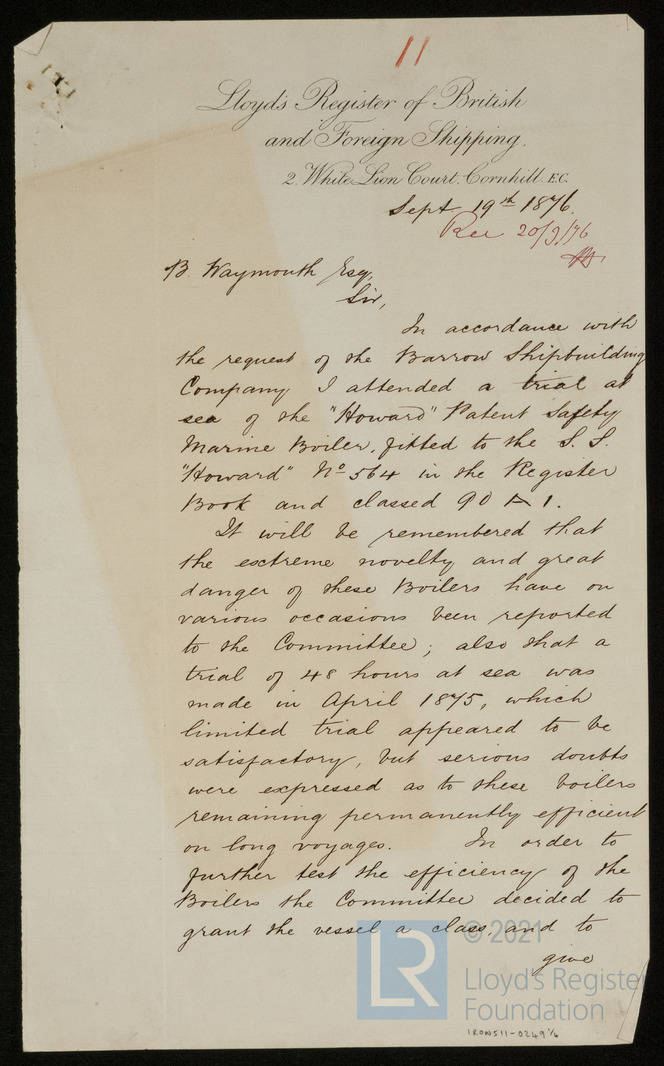 11
Lloyd's Register of British
and Foreign Shipping.
2. White Lion Court. Cornhill. E.C.
Sept 19th 1876.
Rec 20/9/76
B. Waymouth Esq,
Sir,
In accordance with
the request of the Barrow Shipbuilding
Company I attended a trial at
sea of the "Howard" Patent Safety
Marine Boiler, fitted to the S. S.
"Howard" No 564 in the Register
Book and classed 90 A 1.
It will be remembered that
the extreme novelty and great
danger of these Boilers have on
various occasions been reported
to the Committee; also that a
trial of 48 hours at sea was
made in April 1875, which
limited trial appeared to be
satisfactory, but serious doubts
were expressed as to these boilers
remaining permanently efficient
on long voyages. In order to
further test the efficiency of the
Boilers the Committee decided to
grant the vessel a class, and to
give
LR © 2021
Lloyd's Register
Foundation
IRON511-0249 1/6